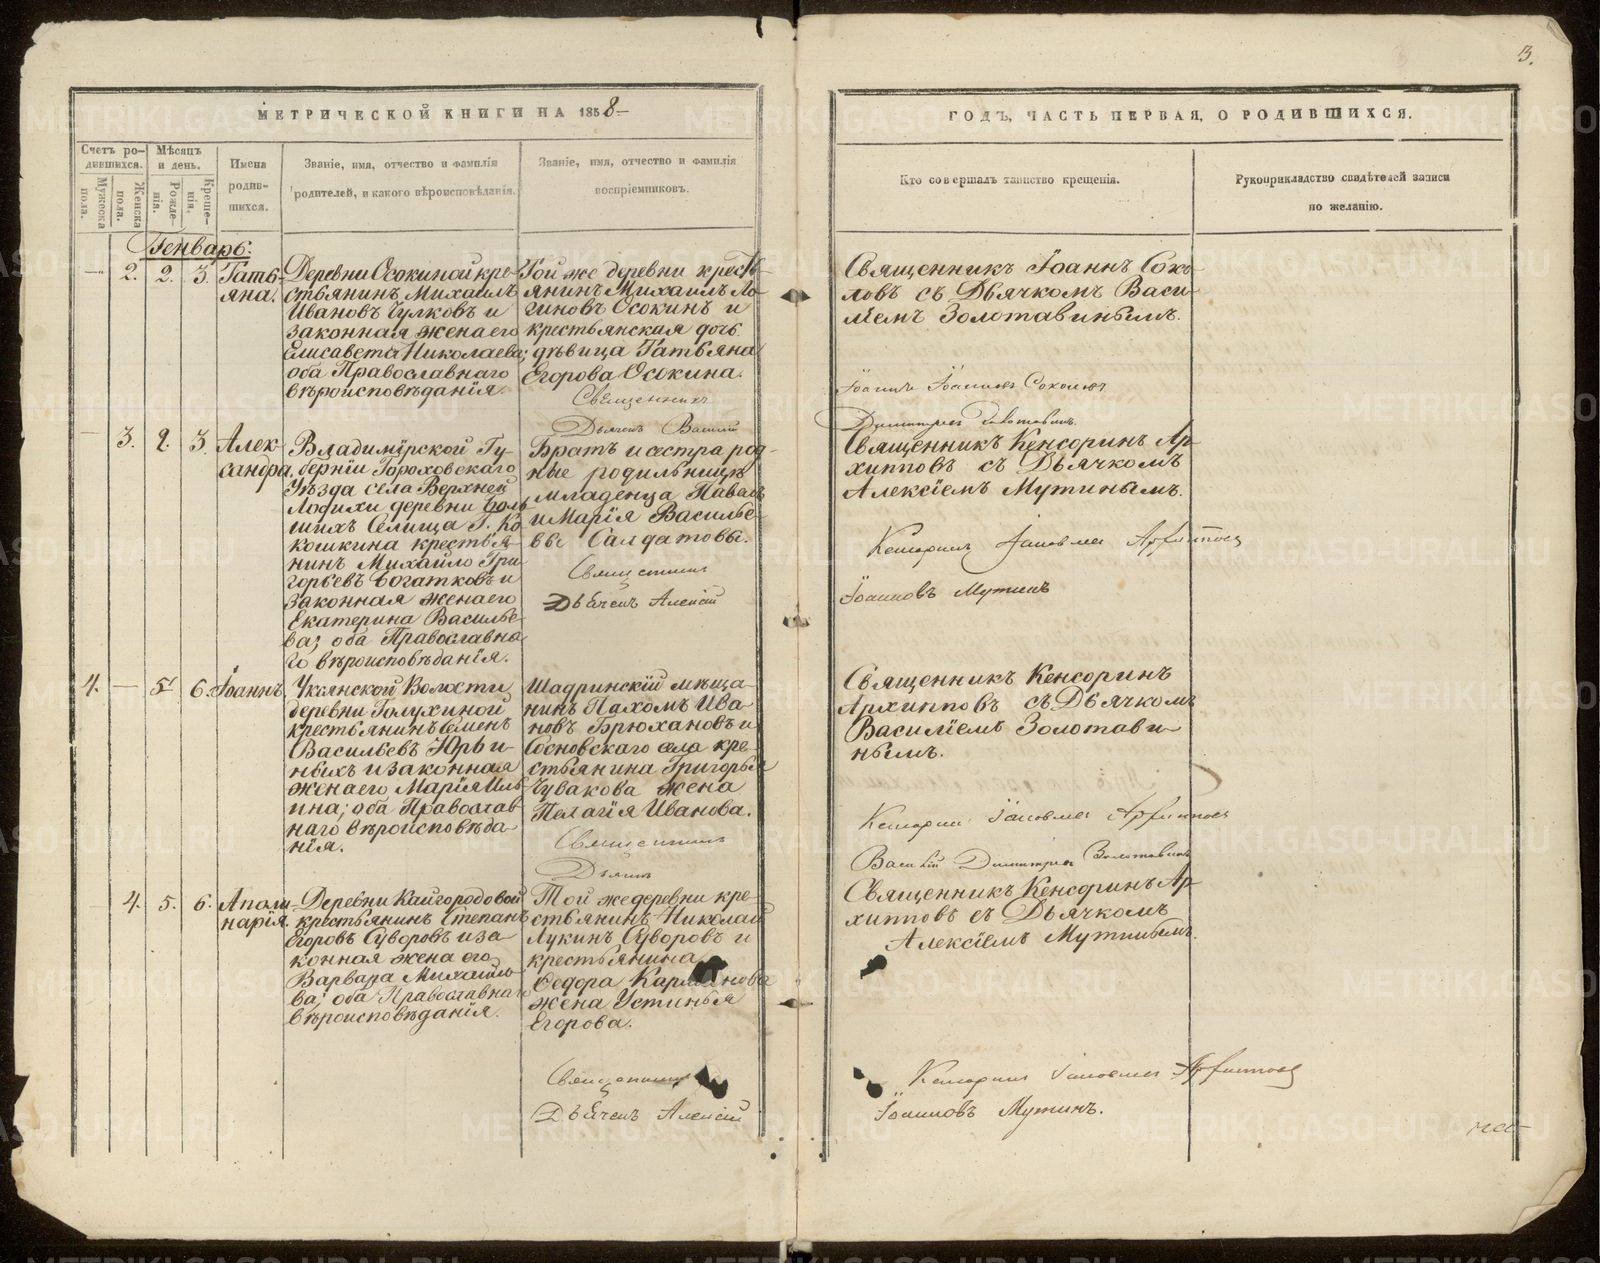 3.
МЕТРИЧЕСКОЙ КНИГИ НА 1858
ГОДЪ, ЧАСТЬ ПЕРВАЯ, О РОДИВШИХСЯ.
Счетъ ро-
дившихся.
Мужеска
пола.
Женска
пола.
Мѣсяцъ
и день.
Рожде-
нія.
Креще-
нія.
Имена
родив-
шихся.
Званіе, имя, отчество и фамилія
родителей, и какого вѣроисповѣданія.
Званіе, имя, отчество и фамилія
воспріемниковъ.
Кто совершалъ таинство крещенія.
Рукоприкладство свидѣтелей записи
по желанію.
Генварь.
— 2. 2. 3.
Тать-
яна.
Деревни Осокиной кре-
стьянинъ Михаилъ
Ивановъ Чулковъ и
законная жена его
Елисавета Николаева;
оба Православнаго
вѣроисповѣданія.
Той же деревни кресть-
янинъ Михаилъ Ло-
гиновъ Осокинъ и
крестьянская дочь
дѣвица Татьяна
Егорова Осокина.
Священникъ
Дьячекъ Василій
Священникъ Іоаннъ Соко-
ловъ съ Дьячкомъ Васи-
ліемъ Золотавинымъ.
Іоаннъ Іоанновъ Соколовъ
— 3. 2. 3.
Алек-
сандра.
Владимірской Гу-
берніи Гороховскаго
Уѣзда села Верхней
Лофихи деревни Боль-
шихъ Селища Г. Ко
кошкина крестья-
нинъ Михайло Гри-
горьевъ Богатковъ и
законная жена его
Екатерина Василье-
ва; оба Православна-
го вѣроисповѣданія.
Братъ и сестра род-
ные родильницы
младенца Павелъ
и Марія Василье-
вы Салдатовы.
Священникъ
Дьячекъ Алексій
Священникъ Кенсоринъ Ар-
хипповъ съ Дьячкомъ
Алексіемъ Мутинымъ.
Кенсоринъ Іаковлев Архипповъ
Іоанновъ Мутинъ
4. — 5. 6.
Іоаннъ.
Уксянской Волости
деревни Голухиной
крестьянинъ Семенъ
Васильевъ Юрьи-
ныхъ и законная
жена его Марія Иль-
ина; оба Православ-
наго вѣроисповѣда-
нія.
Шадринскій мѣща-
нинъ Пахомъ Ива-
новъ Брюхановъ и
Сосновскаго села кре-
стьянина Григорья
Чувакова жена
Пелагія Иванова.
Священникъ
Дьячекъ
Священникъ Кенсоринъ
Архипповъ съ Дьячкомъ
Василіемъ Золотави-
нымъ.
Кенсоринъ Іаковлев Архипповъ
Василій Димитріев Золотавинъ
4. 5. 6.
Аполи-
нарія.
Деревни Кайгородовой
крестьянинъ Степанъ
Егоровъ Суворовъ и за
конная жена его
Варвара Михайло-
ва; оба Православнаго
вѣроисповѣданія.
Той же деревни кре-
стьянинъ Николай
Лукинъ Суворовъ и
крестьянина
Ѳедора Карманова
жена Устинья
Егорова.
Священникъ
Дьячекъ Алексій
Священникъ Кенсоринъ Ар-
хипповъ съ Дьячкомъ
Алексіемъ Мутинымъ.
Кенсоринъ Іаковлев Архипповъ
Іоанновъ Мутинъ.
METRIKI.GASO-URAL.RU